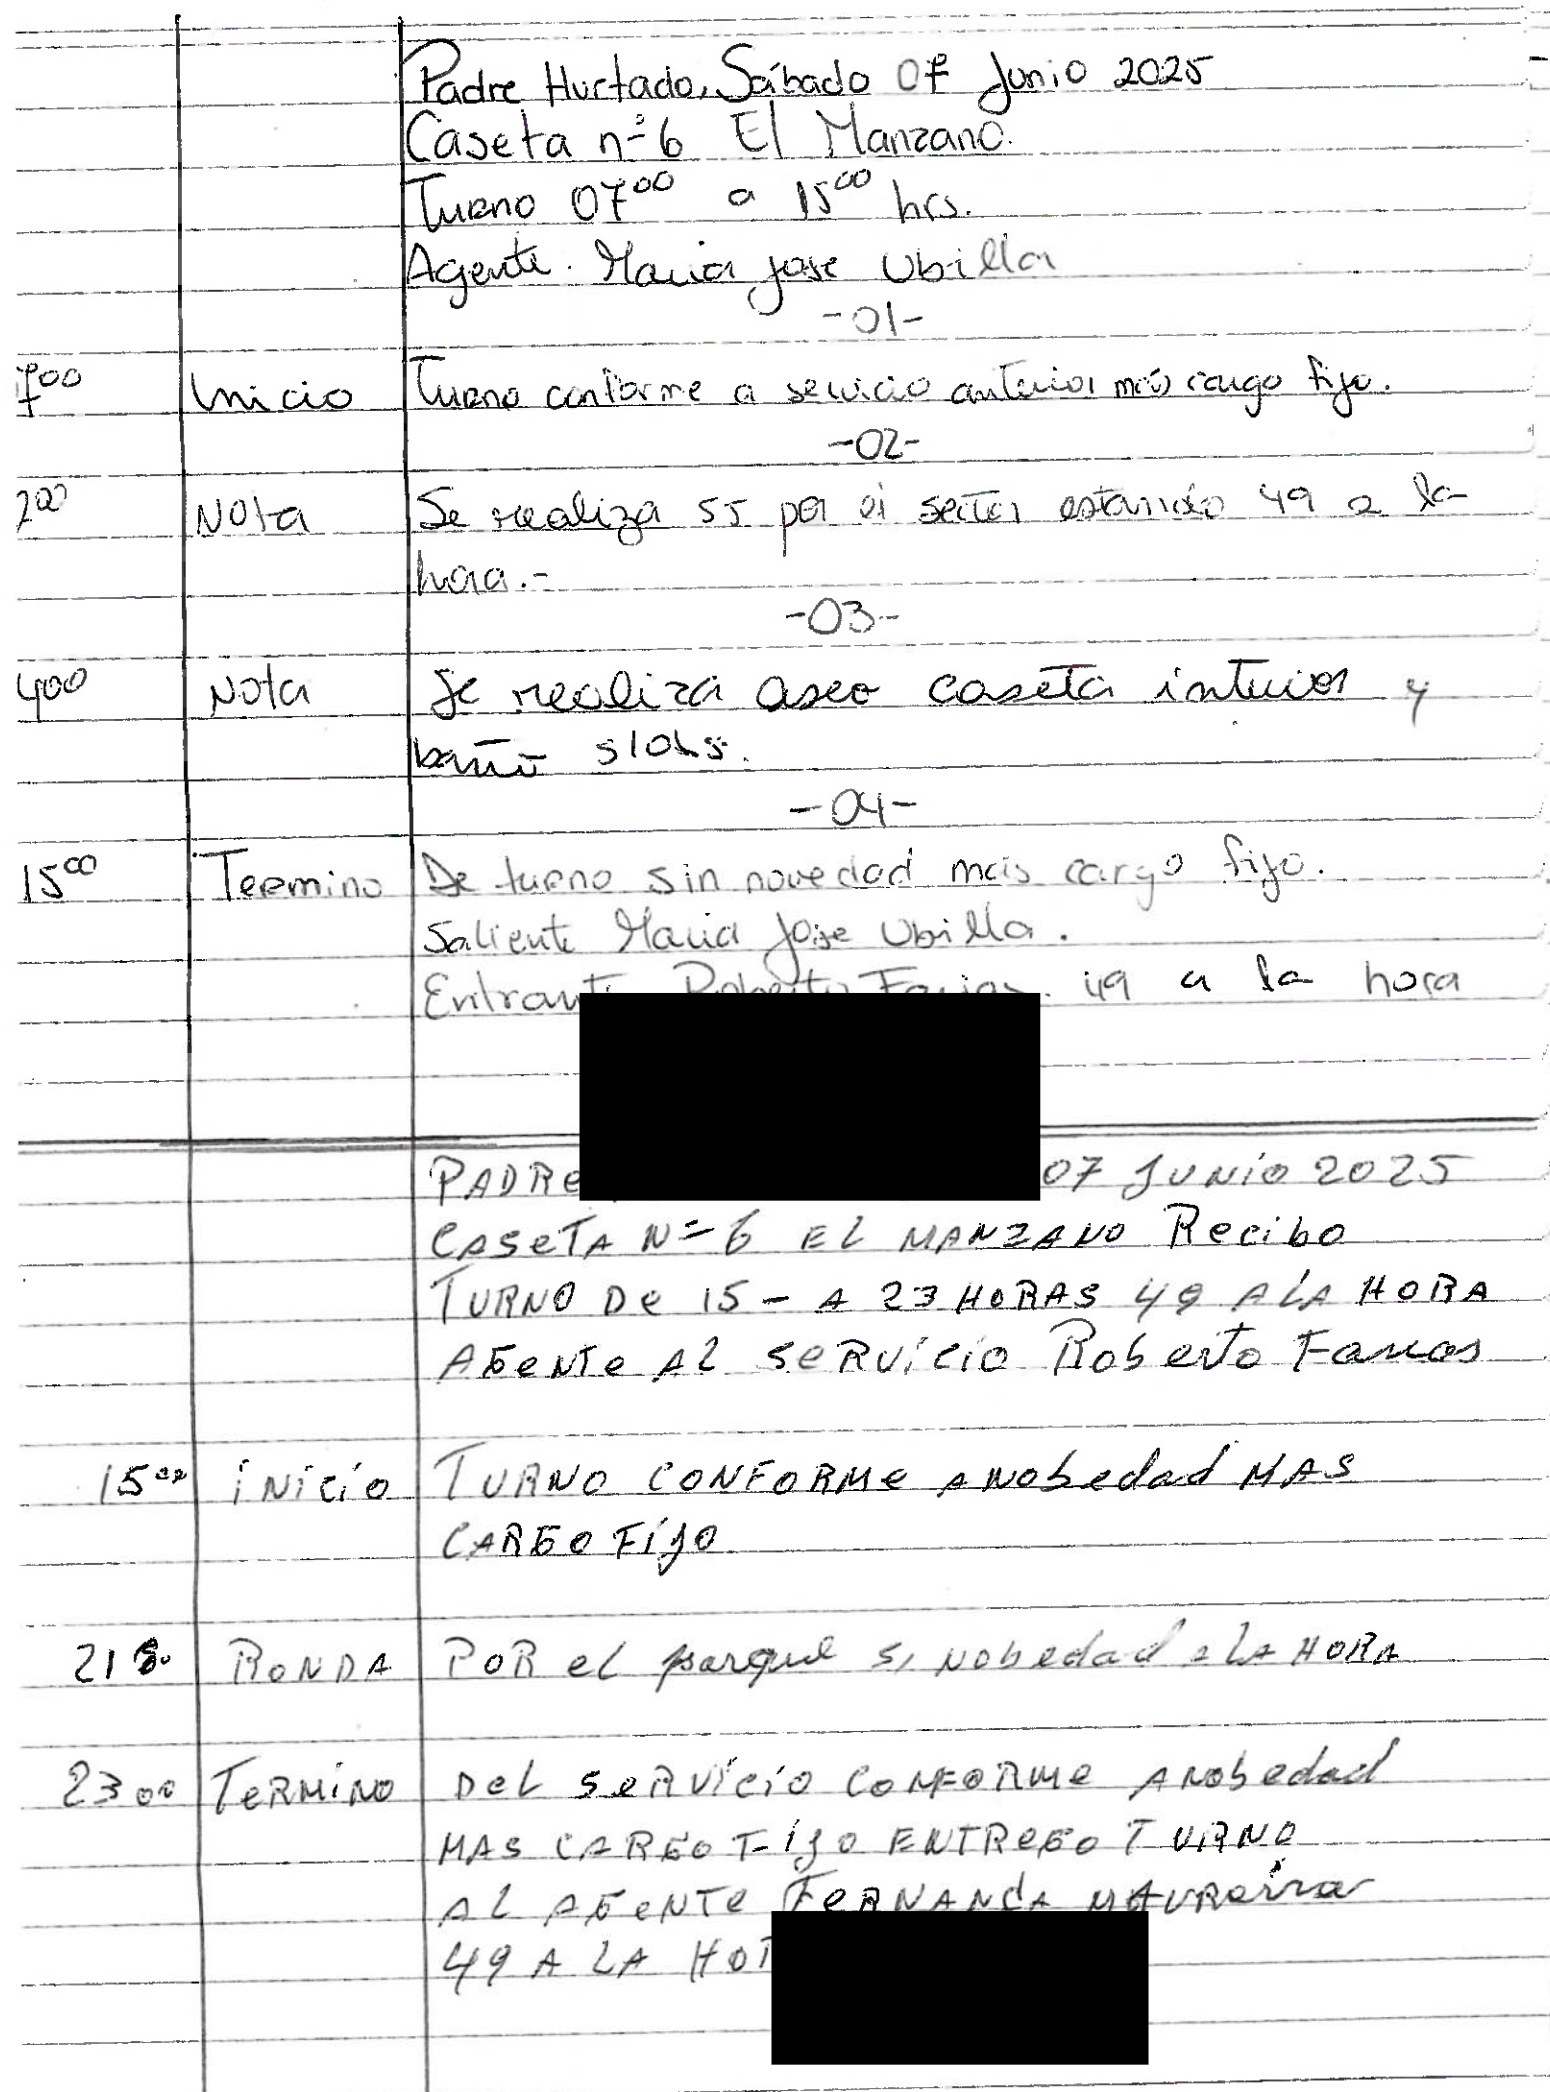 Padre Hurtado, Sábado 07 Junio 2025
Caseta n=6 El Manzano.
Turno 07 00 a 15 00 hrs.
Agente. Maria Jose Ubilla
-01-
700 Inicio Turno conforme a servicio anterior más cargo fijo.
-02-
200 Nota Se realiza 55 por el sector estando 49 a la
hora.-
-03-
400 Nota Se realiza aseo caseta interior y
baño
-04-
15 00 Termino De turno sin novedad más cargo fijo.
Saliente Maria Jose Ubilla.
Entrant Roberto Farias. 49 a la hora
PADRe 07 JUNiO 2025
CASeTA N=6 EL MANZANO Recibo
TURNO De 15 - A 23 HORAS 49 A LA HORA
AGeNTe AL SeRViCiO Roberto Farias
15 00 iNiCiO TURNO CONFORMe A NObedad MAS
CARGO FiJO
21 RONDA POR eL parque S, NObedad a LA HORA
23 00 TeRMiNO DeL SeRViCiO CONFORMe A NObedad
MAS CARGO FiJO ENTREGO TURNO
AL AGeNTe FeRNANdA MAUReira
49 A LA HO